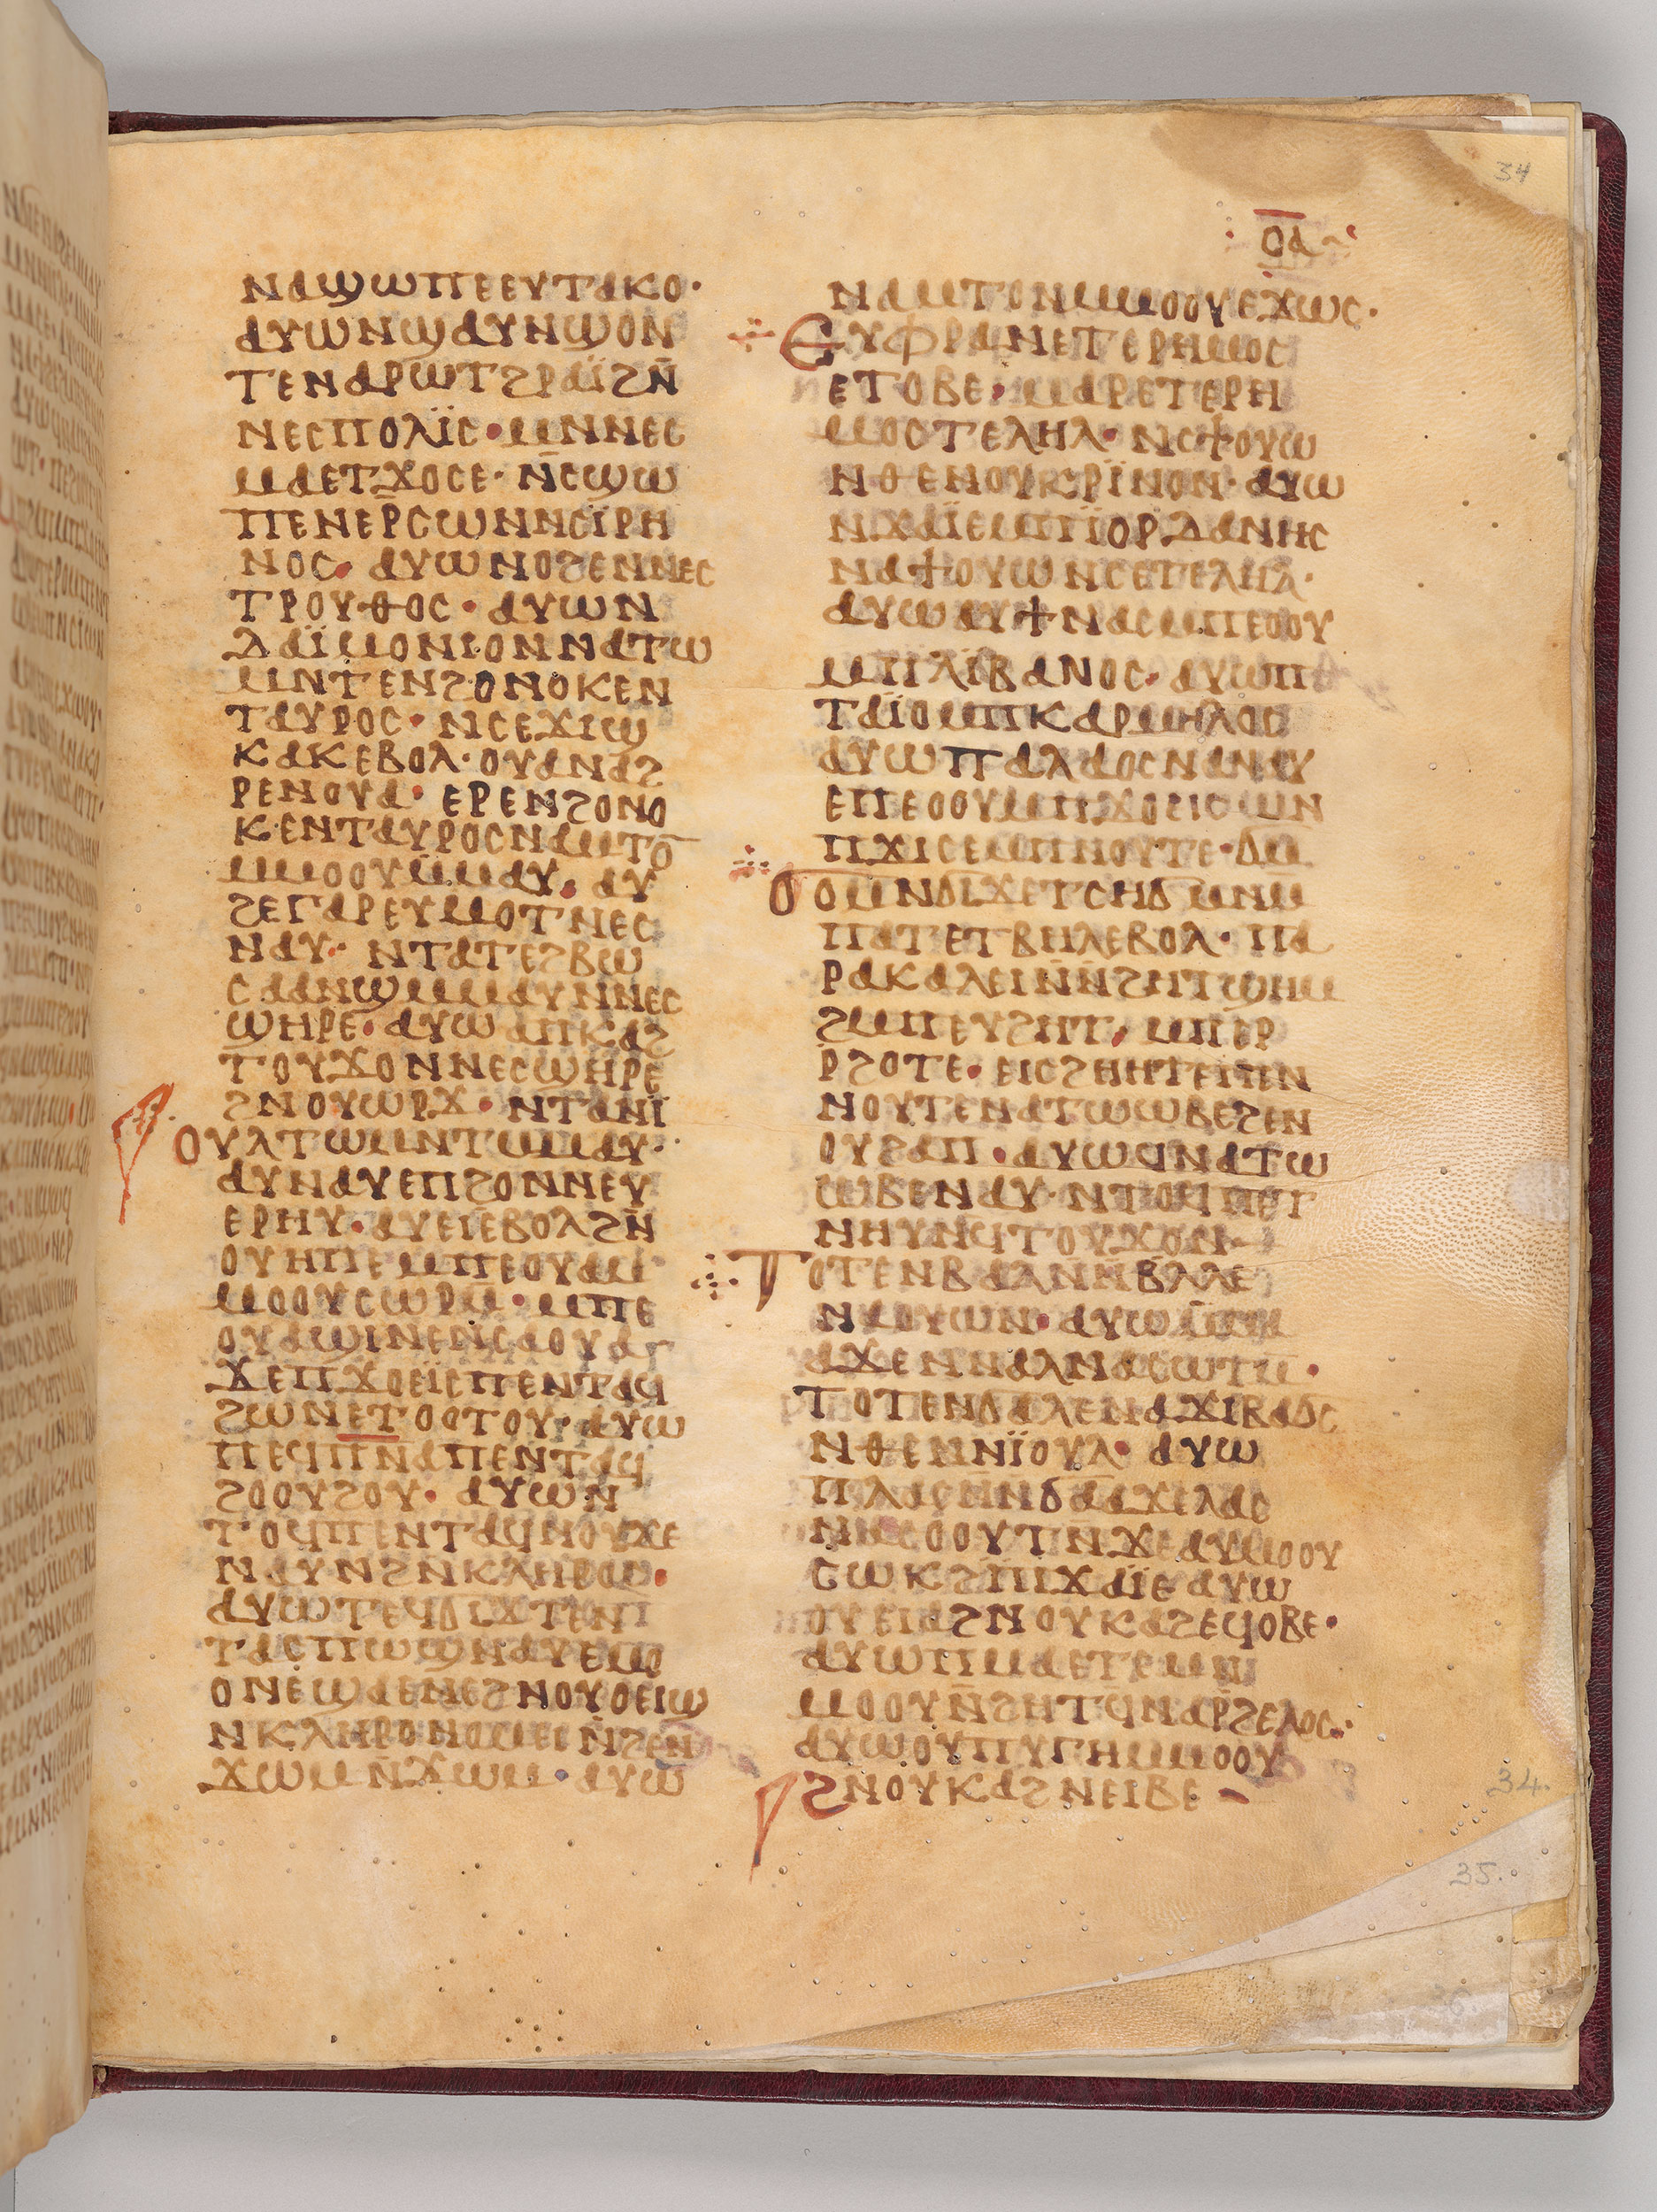 34
ⲟⲁ
ⲛⲁϣⲱⲡⲉⲉⲩⲧⲁⲕⲟ·
ⲁⲩⲱⲛϣⲁⲩⲛϣⲟⲛ
ⲧⲉⲛⲁⲣⲱⲧϩⲣⲁⲓ̈ϩⲛ̄
ⲛⲉⲥⲡⲟⲗⲓ̈ⲥ·ⲙⲛⲛⲉⲥ
ⲙⲁⲉⲧϫⲟⲥⲉ·ⲛ̄ⲥϣⲱ
ⲡⲉⲛⲉⲣⲥⲱⲛⲛⲥⲓ̈ⲣⲏ
ⲛⲟⲥ·ⲁⲩⲱⲛⲟϩⲉⲛⲛⲉⲥ
ⲧⲣⲟⲩⲑⲟⲥ·ⲁⲩⲱⲛ
ⲇⲁⲓ̈ⲙⲟⲛⲓⲟⲛⲛⲁⲧⲱ
ⲙⲛⲧⲉⲛϩⲟⲛⲟⲕⲉⲛ
ⲧⲁⲩⲣⲟⲥ·ⲛⲥⲉϫⲓϣ
ⲕⲁⲕⲉⲃⲟⲗ·ⲟⲩⲁⲛⲁϩ
ⲣⲉⲛⲟⲩⲁ·ⲉⲣⲉⲛϩⲟⲛⲟ
ⲕⲉⲛⲧⲁⲩⲣⲟⲥⲛⲁⲙⲧⲟ̄
ⲙⲙⲟⲟⲩⲙ̄ⲙⲁⲩ·ⲁⲩ
ϩⲉⲅⲁⲣⲉⲩⲙⲟⲧⲛⲉⲥ
ⲛⲁⲩ·ⲛⲧⲁⲧⲉϩⲃⲱ
ⲥⲁⲁⲛϣⲙⲙⲁⲩⲛⲛⲉⲥ
ϣⲏⲣⲉ·ⲁⲩⲱⲁⲡⲕⲁϩ
ⲧⲟⲩϫⲟⲛⲛⲉⲥϣⲏⲣⲉ
ϩⲛⲟⲩⲱⲣϫ·ⲛⲧⲁⲛⲓ̈
ⲟⲩⲗⲧⲱⲙⲛⲧⲙ̄ⲙⲁⲩ·
ⲁⲩⲛⲁⲩⲉⲡϩⲟⲛⲛⲉⲩ
ⲉⲣⲏⲩ·ⲁⲩⲉⲓⲉⲃⲟⲗϩⲛ̄
ⲟⲩⲏⲡⲉⲙⲡⲉⲟⲩⲁⲙ̄
ⲙⲟⲟⲩⲥⲱⲣⲙ̄·ⲙⲡⲉ
ⲟⲩⲁϣⲓⲛⲉⲛ̄ⲥⲁⲟⲩⲁⲓ̈
ϫⲉⲡϫⲟⲉⲓ̈ⲥⲡⲉⲛⲧⲁϥ
ϩⲱⲛⲉⲧⲟⲟⲧⲟⲩ·ⲁⲩⲱ
ⲡⲉϥⲡⲛ̄ⲁⲡⲉⲛⲧⲁϥ
ϩⲟⲟⲩϩⲟⲩ·ⲁⲩⲱⲛ̄
ⲧⲟϥⲡⲉⲛⲧⲁϥⲛⲟⲩϫⲉ
ⲛⲁⲩⲛϩⲛⲕⲗⲏⲣⲟⲥ·
ⲁⲩⲱⲧⲉϥϭⲓϫⲧⲉⲛⲧ
ⲧⲁⲥⲡⲱϣⲛⲁⲩⲉⲙⲟ
ⲟⲛⲉϣⲁⲉⲛⲉϩⲛⲟⲩⲟⲉⲓϣ
ⲛⲕⲗⲏⲣⲟⲛⲟⲙⲉⲓⲛ̄ϩⲉⲛ
ϫⲱⲙⲛ̄ϫⲱⲙ·ⲁⲩⲱ
ⲛⲁⲙⲧⲟⲛⲙⲙⲟⲟⲩⲉϫⲱⲥ·
ⲉⲩⲫⲣⲁⲛⲉⲧⲉⲣⲏⲙⲟⲥ
ⲉⲧⲟⲃⲉ·ⲙⲁⲣⲉⲧⲉⲣⲏ
ⲙⲟⲥⲧⲉⲗⲏⲗ·ⲛⲥϯⲟⲩⲱ
ⲛⲑⲉⲛⲟⲩⲕⲣⲓ̈ⲛⲟⲛ·ⲁⲩⲱ
ⲛϫⲁⲓ̈ⲉⲙⲡⲓ̈ⲟⲣⲇⲁⲛⲏⲥ
ⲛⲁϯⲟⲩⲱⲛⲥⲉⲧⲉⲗⲏⲗ·
ⲁⲩⲱⲁⲩϯⲛⲁⲥⲙⲡⲉⲟⲟⲩ
ⲙⲡⲗⲓ̈ⲃⲁⲛⲟⲥ·ⲁⲩⲱⲡ
ⲧⲁⲓ̈ⲟⲙⲡⲕⲁⲣⲙⲏⲗⲟⲥ
ⲁⲩⲱⲡⲁⲗⲁⲟⲥⲛⲁⲛⲁⲩ
ⲉⲡⲉⲟⲟⲩⲙⲡϫⲟⲉⲓⲥⲙⲛ
ⲡϫⲓⲥⲉⲙⲡⲛⲟⲩⲧⲉ·ϭⲙ̄
ϭⲟⲙⲛϭⲓϫⲉⲧⲥⲏϭⲙⲛⲙ
ⲡⲁⲧⲉⲧⲃⲏⲗⲉⲃⲟⲗ·ⲡⲁ
ⲣⲁⲕⲁⲗⲉⲓⲛ̄ⲛ̄ϩⲏⲧϣⲏⲙ
ϩⲙⲡⲉⲩϩⲏⲧ·ⲙⲡⲉⲣ
ⲣϩⲟⲧⲉ·ⲉⲓⲥϩⲏⲏⲧⲉⲡⲉⲛ
ⲛⲟⲩⲧⲉⲛⲁⲧⲱⲱⲃⲉϩⲉⲛ
ⲟⲩϩⲁⲡ·ⲁⲩⲱϥⲛⲁⲧⲱ
ⲱⲃⲉⲛⲁⲩ·ⲛⲧⲟϥⲡⲉⲧ
ⲛⲏⲩⲛϥⲧⲟⲩϫⲟⲛ
ⲧⲟⲧⲉⲛⲃⲁⲗⲛⲛ̄ⲃⲗ̄ⲗⲉ
ⲛⲁⲟⲩⲱⲛ·ⲁⲩⲱⲙ̄ⲙⲁ
ⲁϫⲉⲛⲛⲁⲗⲛⲁⲥⲱⲧⲙ̄·
ⲧⲟⲧⲉⲛϭⲁⲗⲉⲛⲁϫⲓⲃⲁϭⲥ
ⲛⲑⲉⲛⲛⲓ̈ⲟⲩⲗ·ⲁⲩⲱ
ⲡⲗⲁⲥⲛ̄ⲛϭⲁⲁϫⲉⲗⲁⲥ
ⲛⲁⲥⲟⲟⲩⲧⲛ̄ϫⲉⲁⲩⲙⲟⲟⲩ
ⲥⲱⲕϩⲙ̄ⲡϫⲁⲓ̈ⲉⲁⲩⲱ
ⲟⲩⲉⲓⲁϩⲛⲟⲩⲕⲁϩⲉϥⲟⲃⲉ·
ⲁⲩⲱⲡⲙⲁⲉⲧⲉⲙⲙ̄
ⲙⲟⲟⲩⲛ̄ϩⲏⲧϥ̄ⲛⲁⲣ̄ϩⲉⲗⲟⲥ·
ⲁⲩⲱⲟⲩⲡⲩⲅⲏⲙⲙⲟⲟⲩ
ϩⲛⲟⲩⲕⲁϩⲛⲉⲓⲃⲉ
34.
35.